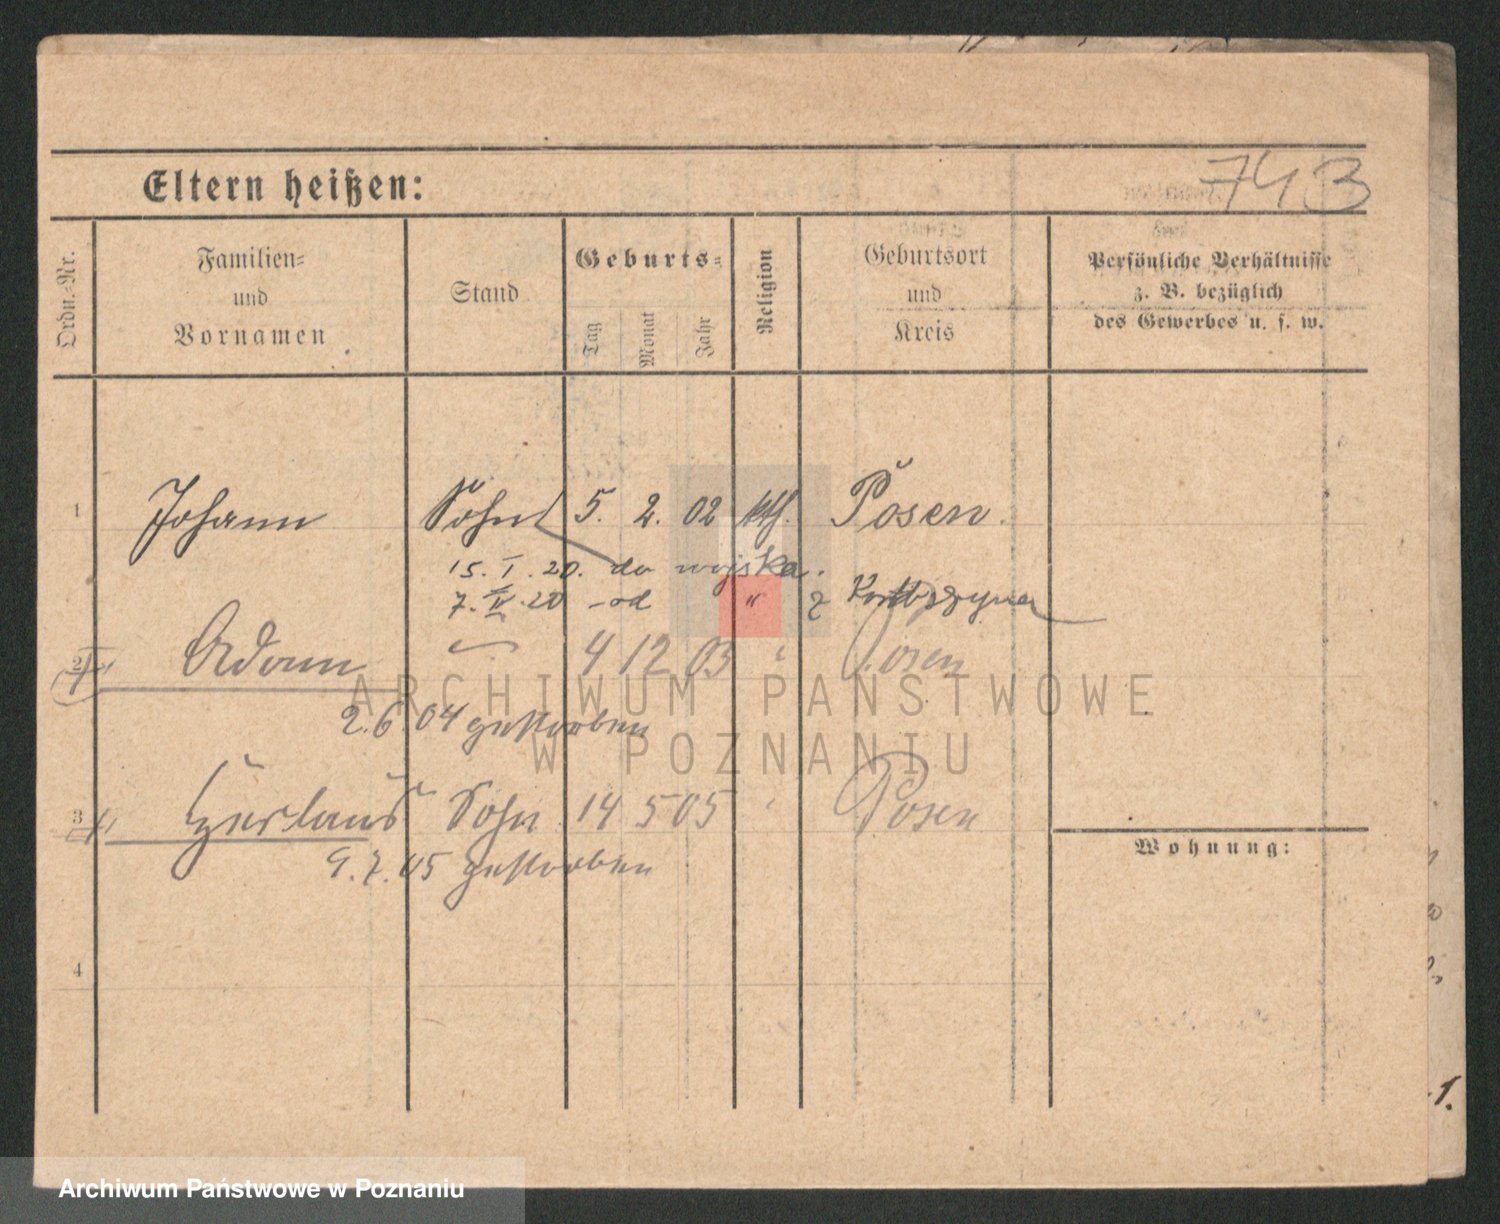 743
Eltern heißen:
Ordn.-Nr.
Familien-
und
Vornamen
Stand
Geburts-
Tag
Monat
Jahr
Religion
Geburtsort
und
Kreis
Persönliche Verhältnisse
z. B. bezüglich
des Gewerbes u. s. w.
1 Johann Sohn 5. 2. 02 kth. Posen.
15. I. 20. do wojska.
7. 20 - od " z
2 Adam 4 12 03 Posen
2.6.04 gestorben
3 Sohn 14 5 05 Posen
9.7.05 gestorben
Wohnung:
4
1.
ARCHIWUM PAŃSTWOWE
W POZNANIU
Archiwum Państwowe w Poznaniu